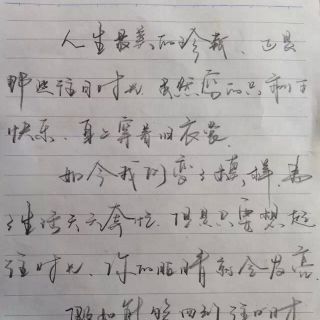 人生最美的珍藏、正是
那些往日时光、虽然穷的只剩下
快乐、身上穿着旧衣裳
如今我们变了模样 为
了生活天天奔忙、但是只要想起
往时光、你的眼睛就会发亮.
假如能够回到往日时